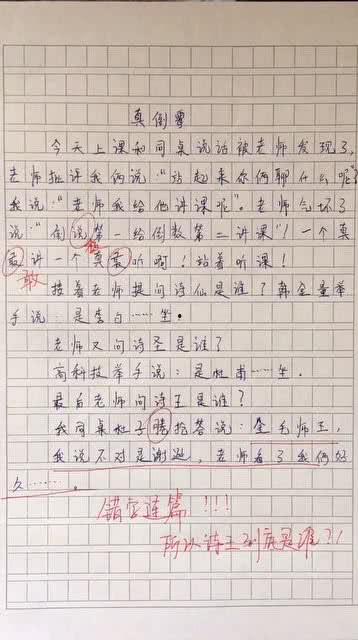 真倒霉
今天上课和同桌说话被老师发现了,
老师批评我俩说:"站起来你俩聊什么呢?"
我说:"老师我给他讲课呢"。老师气坏了
说:"倒说第一给倒数第二讲课"!一个真
数
最讲一个真最听啊!站着听课!
敢
接着老师提问诗仙是谁?韩全量举
手说:是李白……坐。
老师又问诗圣是谁?
高科技举手说:是杜甫……坐.
最后老师问诗王是谁?
我同桌杜子腾抢答说:金毛师王,
我说不对是谢逊,老师看了我俩好
久……。
错字连篇!!!
所以诗王到底是谁?!